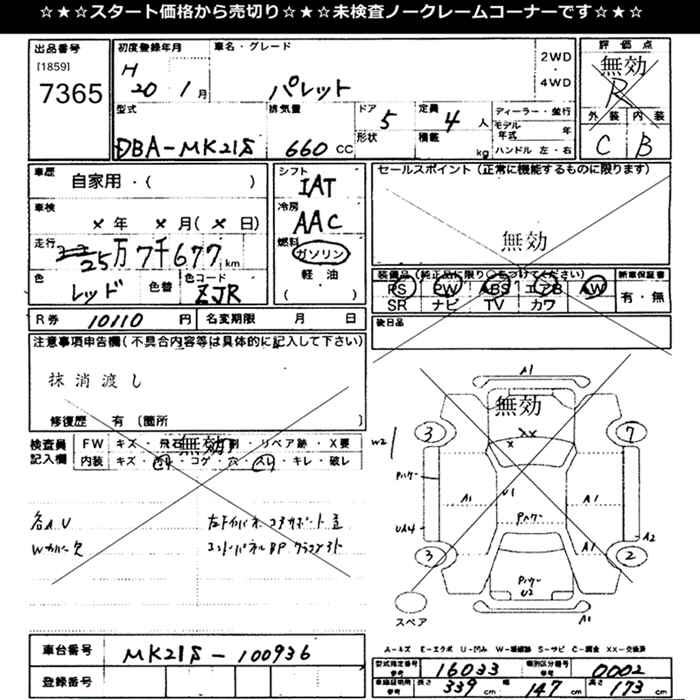 ☆★☆★スタート価格から売切り☆★☆★未検査ノークレームコーナーです☆★☆
出品番号
[1859]
7365
初度登録年月
H
20 1月
車名・グレード
パレット
2WD
・
4WD
評価点
無効
R
外装 内装
C B
型式
DBA-MK21S
排気量
660 CC
ドア 5
形状
定員 4 人
積載 kg
ディーラー・並行
モデル年式 年
ハンドル 左・右
車歴 自家用・( )
車検 × 年 × 月( × 日)
走行 25万7千677km
色 レッド 色替
色コード ZJR
シフト
IAT
冷房
AAC
燃料
ガソリン
軽・油
( )
セールスポイント(正常に機能するものに限ります)
無効
装備品(純正品に限り○をつけてください)
PS PW ABS エアB AW
SR ナビ TV カワ
新車保証書
有・無
R券 10110 円
名変期限 月 日
後日品
注意事項申告欄(不具合内容等は具体的に記入して下さい)
抹消渡し
修復歴 有 〔箇所 〕
検査員
記入欄
FW キズ・飛石・ ・ 割・リペア跡・X要
内装 キズ・ ・コゲ・穴・スレ・キレ・破レ
無効
各A.U
Wカバー欠
無効
A1
3 7
W2
A1 U1 A1
UA4
A2
3 2
A1
U2
A1
スペア
車台番号 MK21S-100936
登録番号
A-キズ E-エクボ U-凹み W-補修跡 S-サビ C-腐食 XX-交換済
型式指定番号
参考
16033
類別区分番号
参考
0002
車検証記載
参考
長さ 339 cm 幅 147 cm 高さ 173 cm